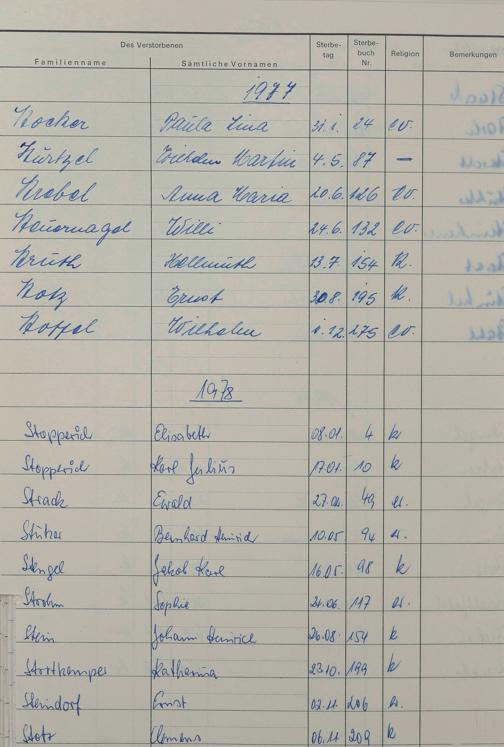 Des Verstorbenen Sterbe- tag Sterbe- buch Nr. Religion Bemerkungen
Familienname Sämtliche Vornamen
1977
Stocker Paula Lina 31.1. 24 ev.
Stürtzel Martin 4.5. 87 —
Strobel Anna Maria 20.6. 126 ev.
Steuernagel Willi 24.6. 132 ev.
Struth Hellmuth 13.7. 154 k.
Stotz Ernst 30.8. 195 k.
Stoffel Wilhelm 1.12. 275 ev.
1978
Stopperich Elisabeth 08.01. 4 k
Stopperich Karl Julius 17.01. 10 k
Strack Ewald 49 ev.
Stüber Bernhard Heinrich 10.05. 94 ev.
Stengel Jakob Karl 16.05. 98 k
Strohm Sophie 21.06. 117 ev.
Stein Johann Heinrich 26.08. 154 k
Stortkemper Katharina 23.10. 199 k
Steindorf Ernst 02.11. 206 ev.
Stotz Clemens 06.11. 209 k